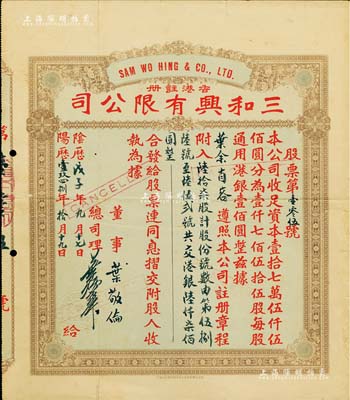 SAM WO HING & CO., LTD.
香港註冊
三和興有限公司
股票第壹零伍號
本公司收足資本壹拾七萬伍仟伍
佰圓分為壹仟七佰伍拾伍股每股
通用港銀壹佰圓整茲據
遵照本公司註冊章程
附入陸拾柒股計股份號數由第伍捌
陸號至陸伍弍號共交港銀陸仟柒佰
圓整
合發給股票連同息摺交附股人收
執為據
董事 葉敬倫
總司理
陰歷戊子年九月十七日
陽歷壹玖四捌年拾月十九日
給
CANCELLED